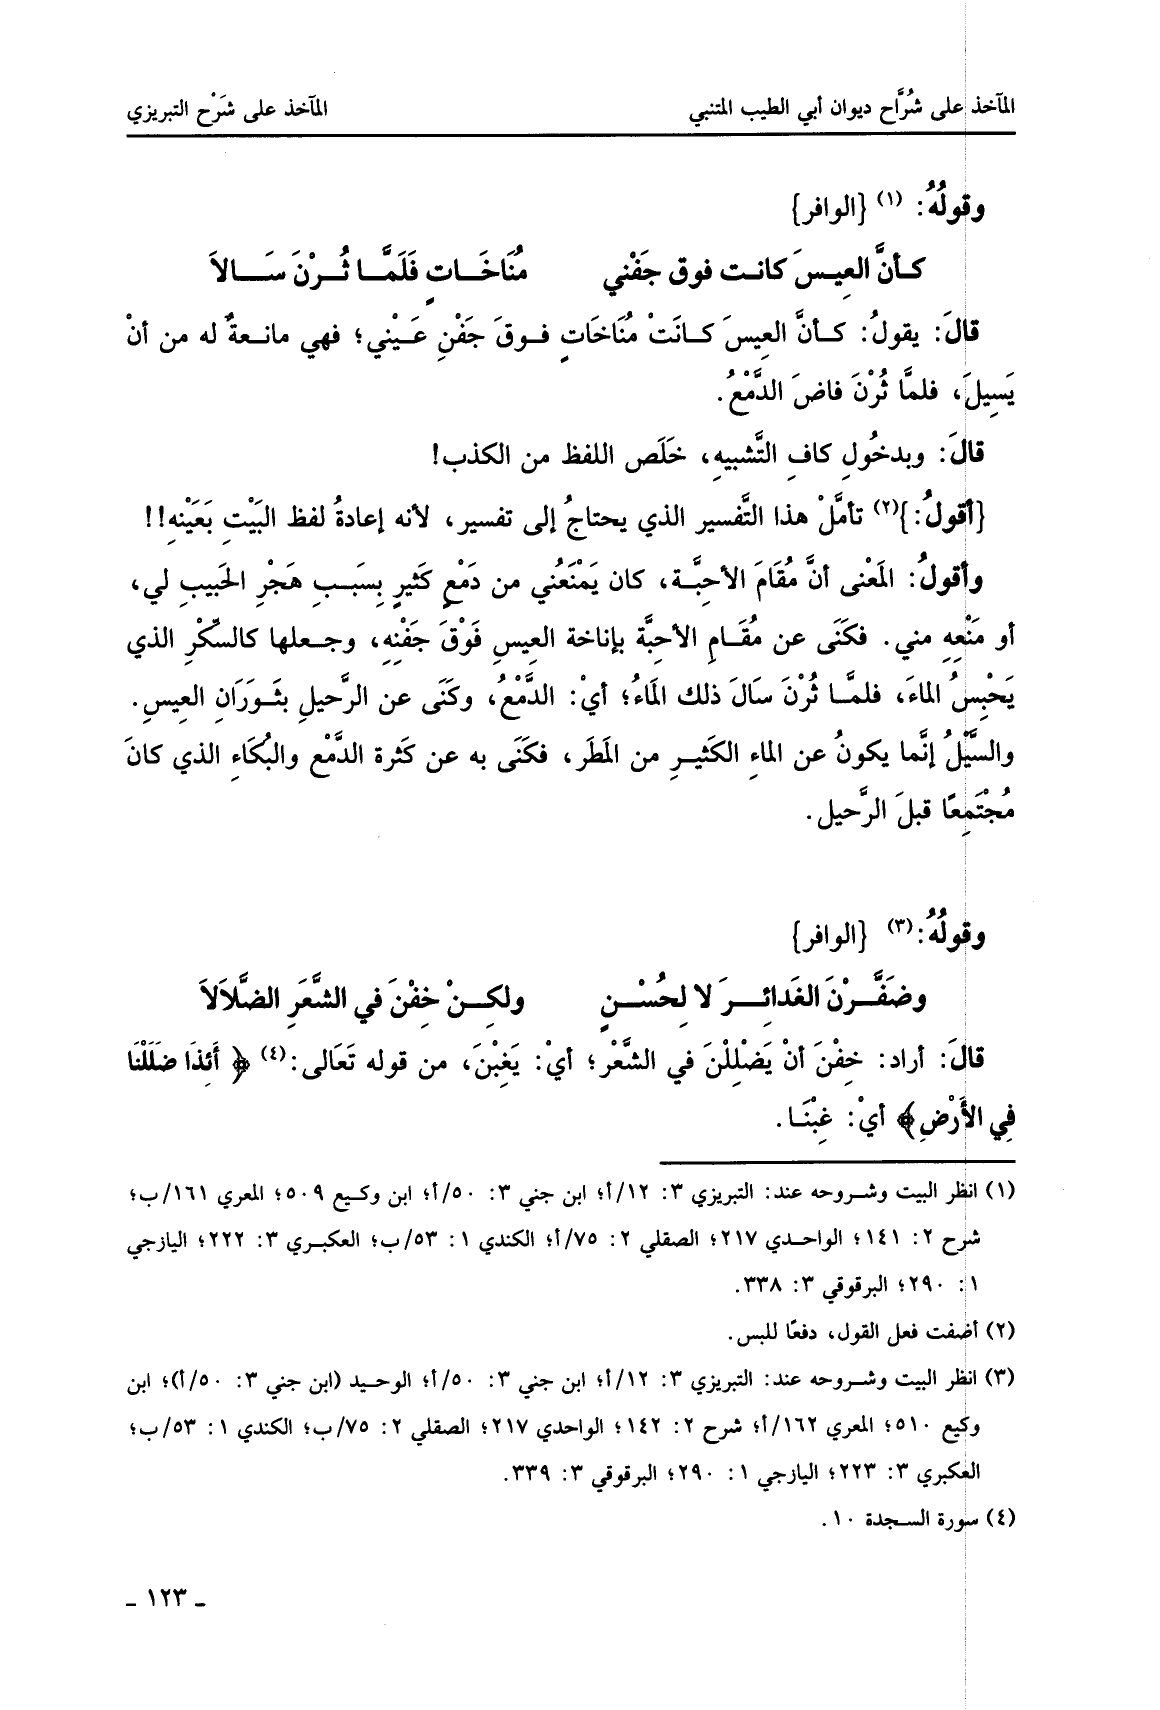 المآخذ على شُرَّاح ديوان أبي الطيب المتنبي المآخذ على شَرْح التبريزي
وقولُهُ: (١) {الوافر}
كأنَّ العِيسَ كانت فوق جَفْني مُنَاخَاتٍ فَلَمَّا ثُرْنَ سَالاَ
قالَ: يقولُ: كأنَّ العِيسَ كانَتْ مُنَاخَاتٍ فوقَ جَفْنِ عَيْني؛ فهي مانعةٌ له من أنْ
يَسِيلَ، فلمَّا ثُرْنَ فاضَ الدَّمْعُ.
قالَ: وبدخُولِ كافِ التَّشبيهِ، خَلَص اللفظ من الكذب!
{أقولُ:}(٢) تأمَّلْ هذا التَّفسير الذي يحتاجُ إلى تفسير، لأنه إعادةُ لفظ البَيْتِ بَعَيْنِهِ!!
وأقولُ: المَعْنى أنَّ مُقَامَ الأحِبَّة، كان يَمْنَعُني من دَمْعٍ كَثيرٍ بِسَبَبِ هَجْرِ الحَبيبِ لي،
أو مَنْعِهِ مني. فكَنَى عن مُقَامِ الأحِبَّة بإناخة العيسِ فَوْقَ جَفْنِهِ، وجعلها كالسِّكْرِ الذي
يَحْبِسُ الماءَ، فلمَّا ثُرْنَ سَالَ ذلك المَاءُ؛ أيْ: الدَّمْعُ، وكَنَى عن الرَّحيلِ بثَوَرَانِ العيسِ.
والسَّيْلُ إنَّما يكونُ عن الماءِ الكَثيرِ من المَطَر، فكَنَى به عن كَثرة الدَّمْع والبُكَاءِ الذي كانَ
مُجْتَمِعًا قبلَ الرَّحيل.
وقولُهُ:(٣) {الوافر}
وضَفَّرْنَ الغَدائِرَ لا لِحُسْنٍ ولكِنْ خِفْنَ في الشَّعَرِ الضَّلاَلاَ
قالَ: أراد: خِفْنَ أنْ يَضْلِلْنَ في الشَّعْر؛ أيْ: يَغِبْنَ، من قوله تَعَالى:(٤) ﴿ أَئذَا ضَلَلْنَا
فِي الأَرْضِ﴾ أيْ: غِبْنَا.
(١) انظر البيت وشروحه عند: التبريزي ٣: ١٢/أ؛ ابن جني ٣: ٥٠/أ؛ ابن وكيع ٥٠٩؛ المعري ١٦١/ب؛
شرح ٢: ١٤١؛ الواحدي ٢١٧؛ الصقلي ٢: ٧٥/أ؛ الكندي ١: ٥٣/ب؛ العكبري ٣: ٢٢٢؛ اليازجي
١: ٢٩٠؛ البرقوقي ٣: ٣٣٨.
(٢) أضفت فعل القول، دفعًا للبس.
(٣) انظر البيت وشروحه عند: التبريزي ٣: ١٢/أ؛ ابن جني ٣: ٥٠/أ؛ الوحيد (ابن جني ٣: ٥٠/أ)؛ ابن
وكيع ٥١٠؛ المعري ١٦٢/أ؛ شرح ٢: ١٤٢؛ الواحدي ٢١٧؛ الصقلي ٢: ٧٥/ب؛ الكندي ١: ٥٣/ب؛
العكبري ٣: ٢٢٣؛ اليازجي ١: ٢٩٠؛ البرقوقي ٣: ٣٣٩.
(٤) سورة السجدة ١٠.
ـ ١٢٣ ـ